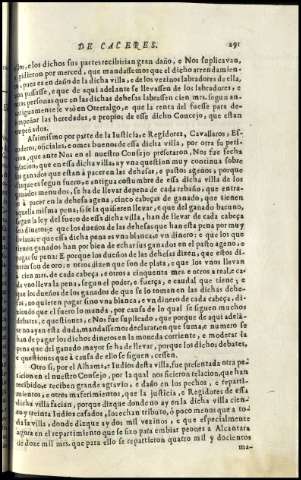 DE CACERES. 291
jos, e los dichos sus partes recibirian gran daño, e Nos suplicavan,
e pidieron por merced, que mandassemos que el dicho arrendamien-
para en de la dicha villa, e de los vezinos labradores de ella,
passasse, e que de aqui adelante se llevassen de los labradores, e
otras personas que en las dichas dehesas labrassen cien mrs. segun an-
tiguamente se vaò en Otertalgo, e que la renta del fuesse para de-
sempeñar las heredades, e propios de esse dicho Concejo, que estan
empeñados.
Assimismo por parte de la Justicia, e Regidores, Cavalleros, Es-
cuderos, oficiales, e omes buenos de essa dicha villa, por otra su peti-
cion, que ante Nos en el nuestro Consejo presentaron, Nos fue fecha
relacion, que en essa dicha villa ay una question muy continua sobre
los ganados que estàn à pacer en las dehesas, e pastos agenos, porque
dizque es segun fuero, e antigua costumbre de essa dicha villa de los
ganados menudos, se ha de llevar de pena de cada rebaño, que entra-
re à pacer en la dehesa agena, cinco cabeças de ganado, que tienen
aquella misma pena, si se la quisieren llevar, e que del ganado bacuno,
segun la ley del fuero de essa dicha villa, han de llevar de cada cabeça
un dinero: e que los dueños de las dehesas que han esta pena por muy
liviana: e que essa dicha pena es una blanca, e un dinero: e que los que
tienen ganados han por bien de echar sus ganados en el pasto ageno, e
pagar su pena: E porque los dueños de las dehesas dizen, que estos di-
neros son de oro: e otros dizen que son de plata, e que los unos llevan
cien mrs. de cada cabeça, e otros a cinquenta mrs. e otros a real, e ca-
da uno lleva la pena, segun el poder, e fuerça, e caudal que tiene; e
que los dueños de los ganados de que se lo tomen en las dichas dehe-
sas, no quieren pagar sino una blanca, e un dinero de cada cabeça, di-
ziendo que el fuero lo manda, por causa de lo qual se siguen muchos
debates, e questiones, e Nos fue suplicado que porque de aqui adelante
no aya esta duda, mandassemos declarar en que suma, e numero se
han de pagar los dichos dineros en la moneda corriente, e moderar la
pena que del ganado mayor se ha de llevar, porque los dichos debates,
e questiones que à causa de ello se siguen, cessen.
Otro si, por el Alhama, e Iudios de essa villa, fue presentada otra pe-
ticion en el nuestro Consejo, por la qual nos hizieron relacion, que han
recibido, e reciben grande agravio, e daño en los pechos, e reparti-
mientos, e otros repartimientos, que la Justicia, e Regidores de essa
dicha villa facian, porque dizque donde no ay en la dicha villa cien-
to y treinta Iudios casados, los echan tributo, ò poco menos que a to-
da la villa, donde dizque ay dos mil vezinos, e que especialmente
agora en el repartimiento que se fizo para embiar peones a Alcantara
de doze mil mrs. que para ello se repartieron quatro mil y docientos
ma-